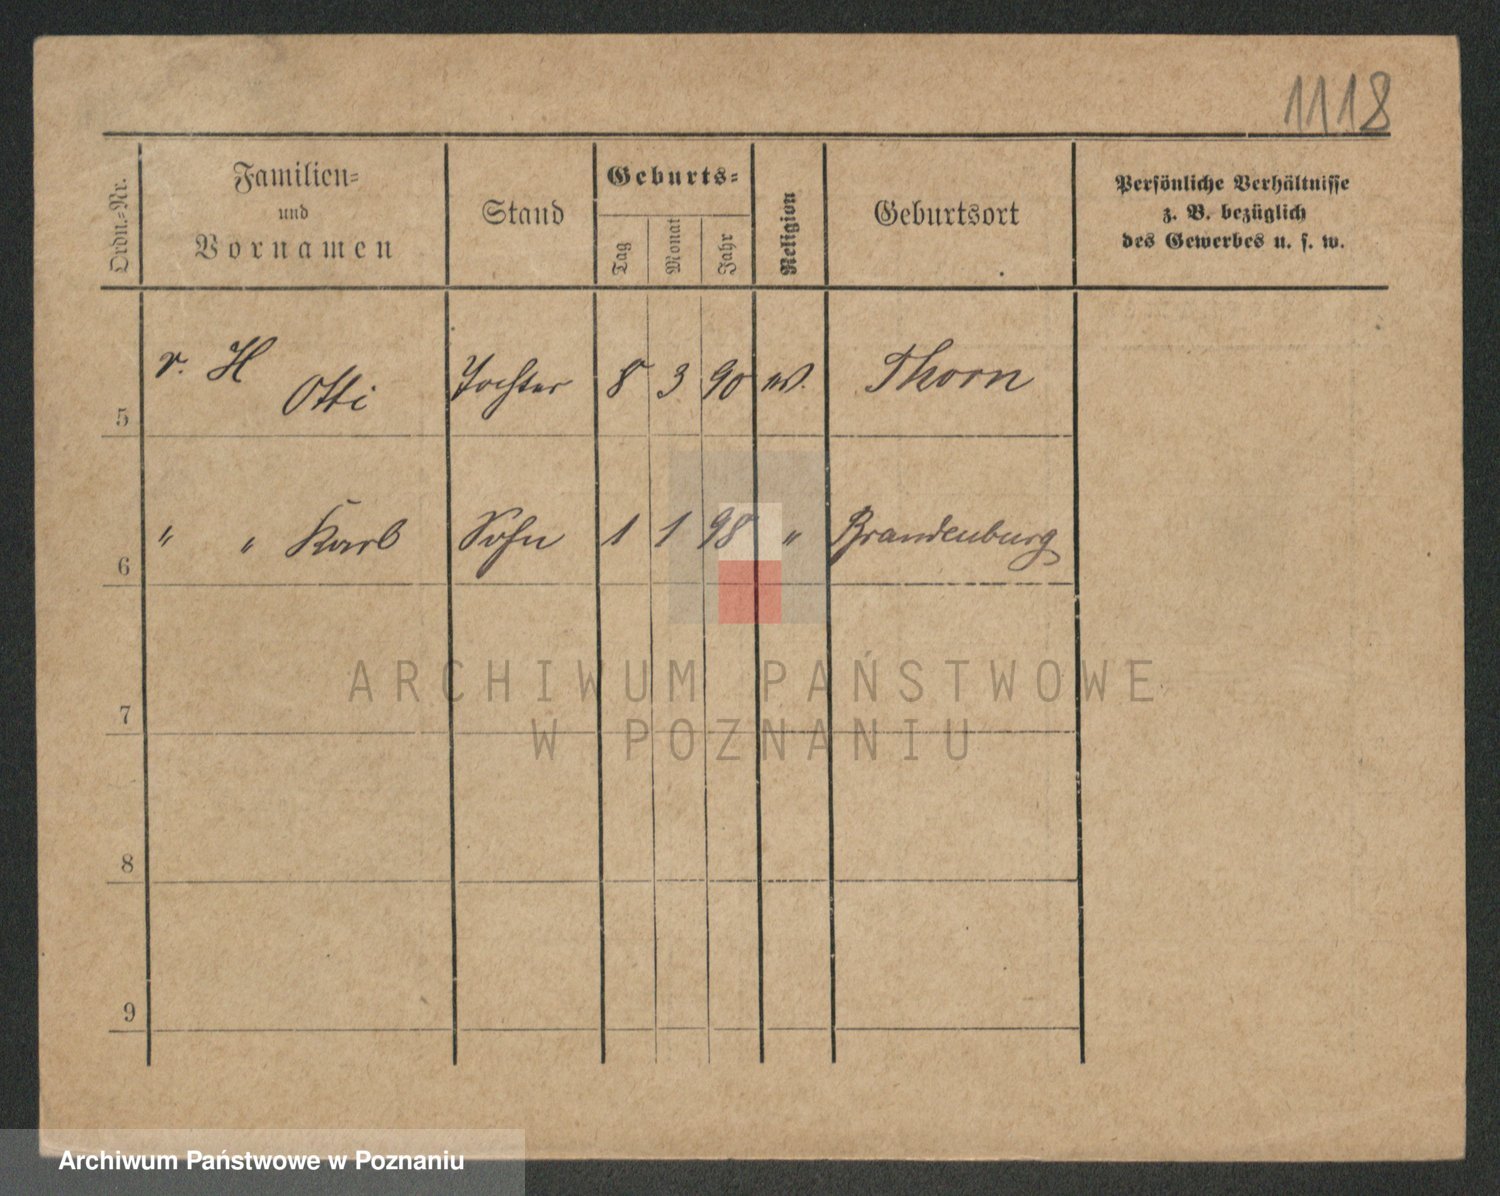 1118
Ordn.-Nr.
Familien-
und
Vornamen
Stand
Geburts-
Tag
Monat
Jahr
Religion
Geburtsort
Persönliche Verhältnisse
z. B. bezüglich
des Gewerbes u. s. w.
5 v. H Otti Tochter 8 3 90 Thorn
6 " " Karl Sohn 1 1 98 " Brandenburg
7
8
9
ARCHIWUM PAŃSTWOWE
W POZNANIU
Archiwum Państwowe w Poznaniu